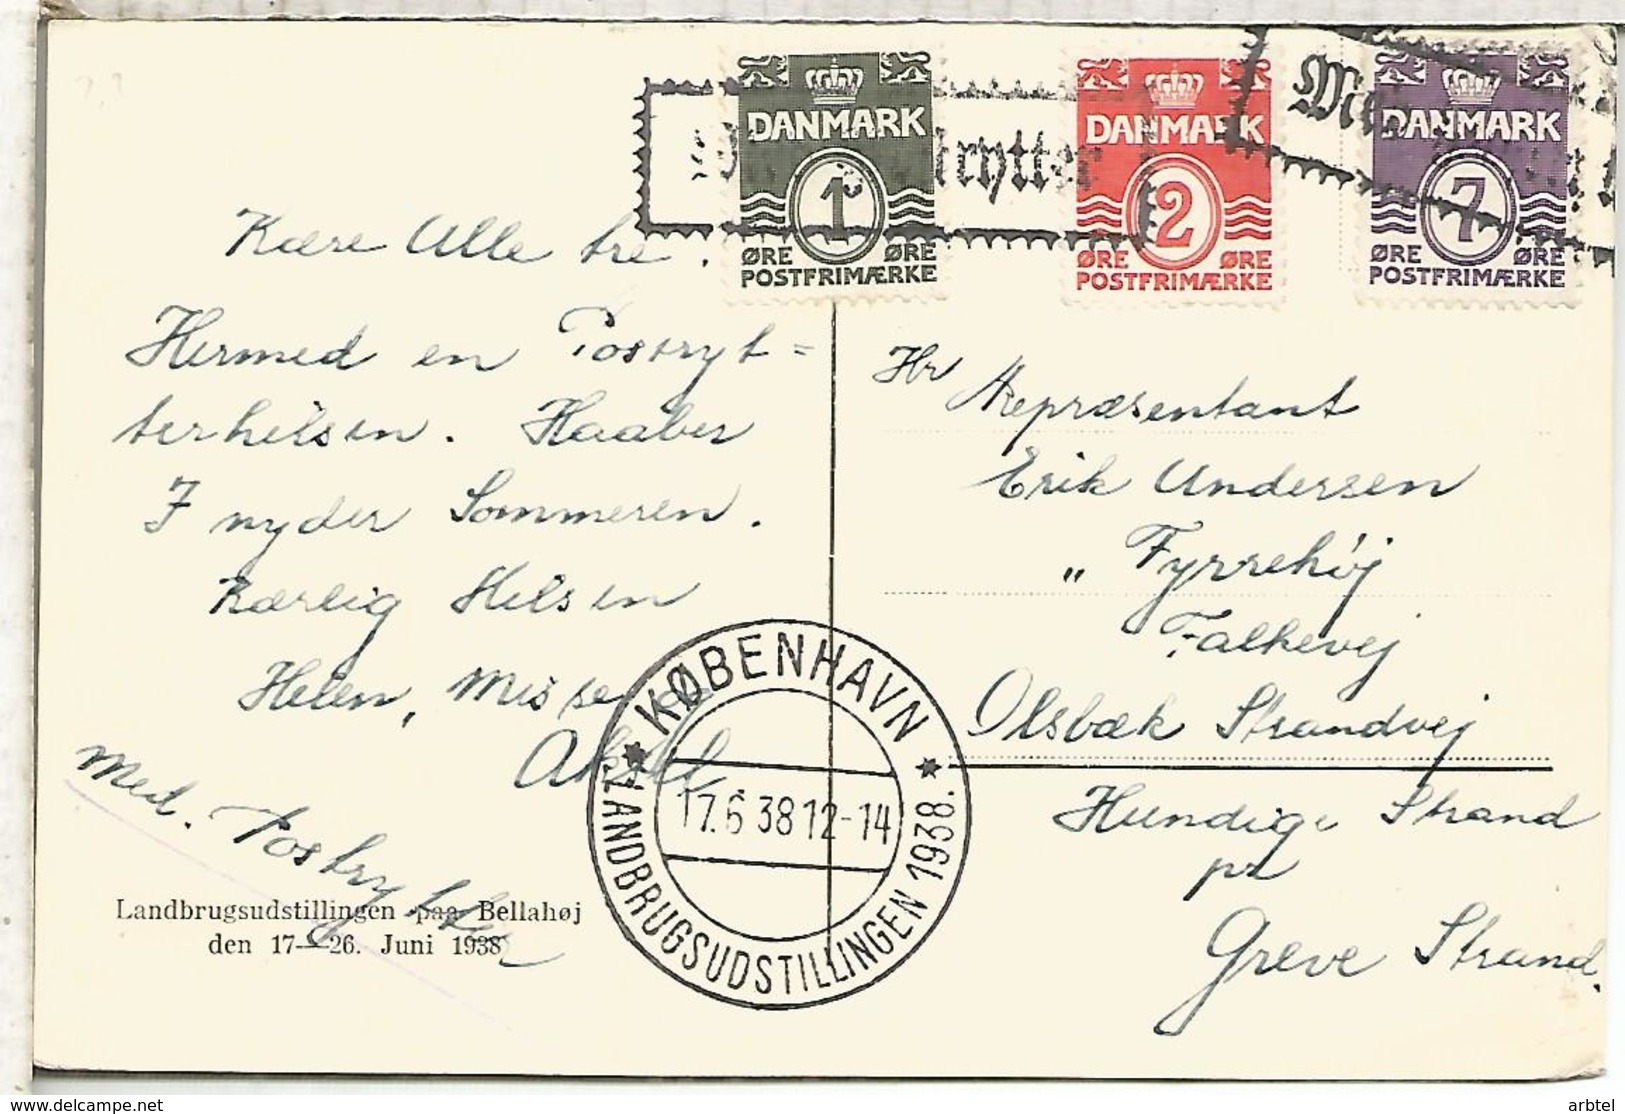 DANMARK
1
ØRE ØRE
POSTFRIMÆRKE
DANMARK
2
ØRE ØRE
POSTFRIMÆRKE
DANMARK
7
ØRE ØRE
POSTFRIMÆRKE
rytter
Kære Alle tre.
Hermed en Postryt=
terhilsen. Haaber
I nyder Sommeren.
Kærlig Hilsen
Helen, Misse og
Aksel
Med. Postrytter
Landbrugsudstillingen paa Bellahøj
den 17—26. Juni 1938
KØBENHAVN
17.6 38 12-14
LANDBRUGSUDSTILLINGEN 1938.
Hr Repræsentant
Erik Andersen
„ Fyrrehøj
Falkevej
Olsbæk Strandvej
Hundige Strand
pr
Greve Strand.
arbtel
www.delcampe.net